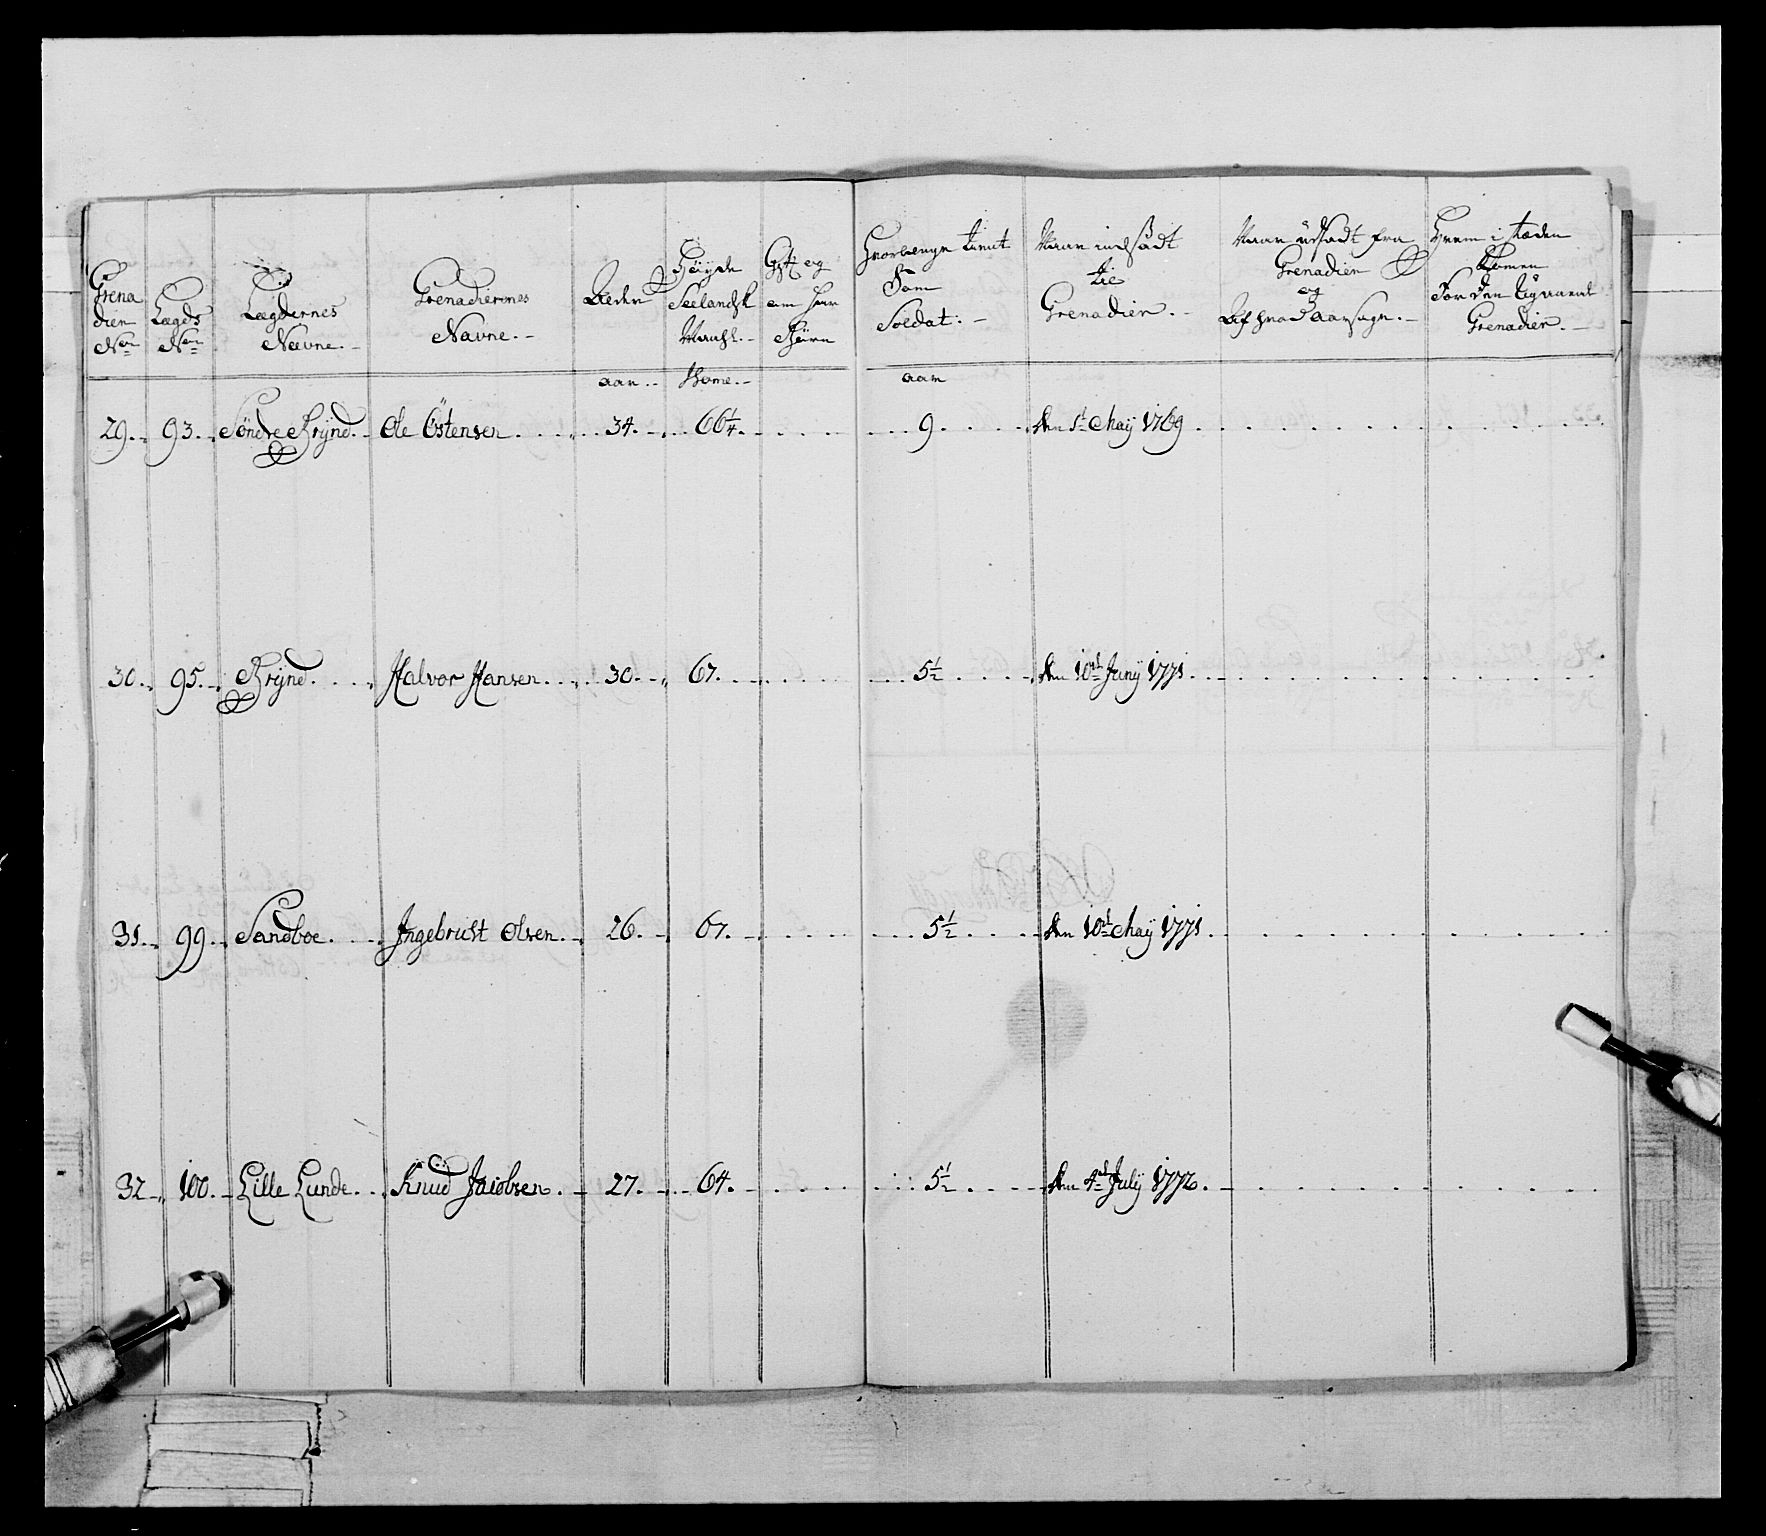 Grena
dier
No
Lægds
No
Lægdernes
Nævne.
Grenadierernes
Navne.
Alder
Høyde
Seelandsk
Maahl.
Gift og
om har
Børn
Hvorlænge tient
som
Soldat.
Naar indsadt
til
Grenadier.
Naar udsadt fra
Grenadier
og
Af hvad aarsage.
Hvem i stæden
kommen
For den
Grenadier.
aar. Tome. aar
29. 93. Söndre Brÿnd. Ole Östensen 34. 66 1/4. 9. den 1t Maÿ 1769
30. 95. Brÿnd. Halvor Hansen 30. 67. 5 1/2 den 10de Junÿ 1771
31. 99. Sandboe. Ingebricht Olsen. 26. 67. 5 1/2 den 10de Maÿ 1771
32 100. Lille Lunde. Knud Jacobsen 27. 64. 5 1/2 den 4de Julÿ 1772.